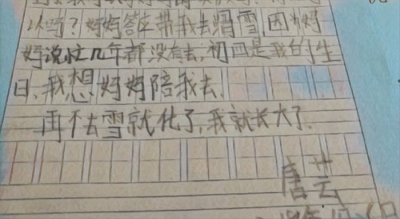 以吗？妈妈答车带我去滑雪,因为妈
妈说忙几年都没有去,初四是我的生
日、我想妈妈陪我去.
再不去雪就化了,我就长大了.
唐芸